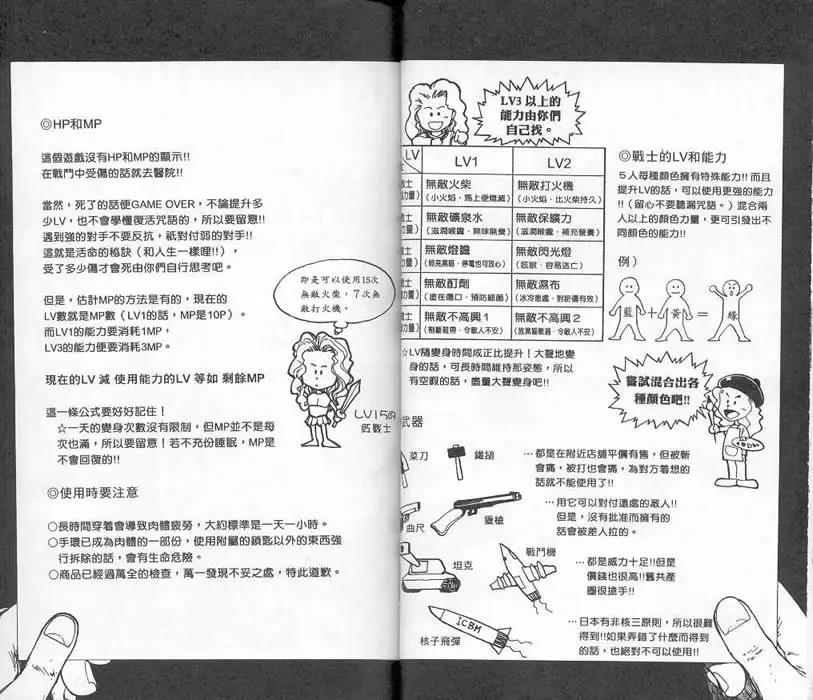 ◎HP和MP
這個遊戲沒有HP和MP的顯示!!
在戰鬥中受傷的話就去醫院!!
當然，死了的話便GAME OVER，不論提升多
少LV，也不會學懂復活咒語的，所以要留意!!
遇到強的對手不要反抗，祇對付弱的對手!!
這就是活命的秘訣（和人生一樣哩!!），
受了多少傷才會死由你們自行思考吧。
但是，估計MP的方法是有的，現在的
LV數就是MP數（LV1的話，MP是10P）。
而LV1的能力要消耗1MP，
LV3的能力便要消耗3MP。
現在的LV 減 使用能力的LV 等如 剩餘MP
這一條公式要好好記住！
☆一天的變身次數沒有限制，但MP並不是每
次也滿，所以要留意！若不充份睡眠，MP是
不會回復的!!
即是可以使用15次
無敵火柴，7次無
敵打火機。
LV15的
伍戰士
◎使用時要注意
○長時間穿着會導致肉體疲勞，大約標準是一天一小時。
○手環已成為肉體的一部份，使用附屬的鎖匙以外的東西強
行拆除的話，會有生命危險。
○商品已經過萬全的檢查，萬一發現不妥之處，特此道歉。
LV3 以上的
能力由你們
自己找。
LV LV1 LV2
士 力量） 無敵火柴 無敵打火機
（小火焰，馬上便熄滅） （小火焰，比火柴持久）
士 力量） 無敵礦泉水 無敵保礦力
（滋潤喉嚨，無味無臭） （滋潤喉嚨，補充營養）
士 力量） 無敵燈膽 無敵閃光燈
（照亮黑暗，停電也可放心） （眩眼，容易逃亡）
士 力量） 無敵酊劑 無敵濕布
（塗在傷口，預防細菌） （冰冷患處，對瘀傷有效）
士 力量） 無敵不高興1 無敵不高興2
（割斷鞋帶，令敵人不安） （放黑貓衝過，令敵人不安）
☆LV隨變身時間成正比提升！大聲地變
身的話，可長時間維持那姿態，所以
有空假的話，盡量大聲變身吧!!
◎戰士的LV和能力
5人每種顏色擁有特殊能力!!而且
提升LV的話，可以使用更強的能力
!!（留心不要聽漏咒語。）混合兩
人以上的顏色力量，更可引發出不
同顏色的能力!!
例）
藍＋黃＝綠
嘗試混合出各
種顏色吧!!
武器
菜刀
鐵鎚
…都是在附近店舖平價有售，但被斬
會痛，被打也會痛，為對方着想的
話就不能使用了!!
曲尺
獵槍
…用它可以對付遠處的敵人!!
但是，沒有批准而擁有的
話會被差人拉的。
坦克
戰鬥機
…都是威力十足!!但是
價錢也很高!!舊共產
圈很搶手!!
ICBM
核子飛彈
…日本有非核三原則，所以很難
得到!!如果弄錯了什麼而得到
的話，也絕對不可以使用!!